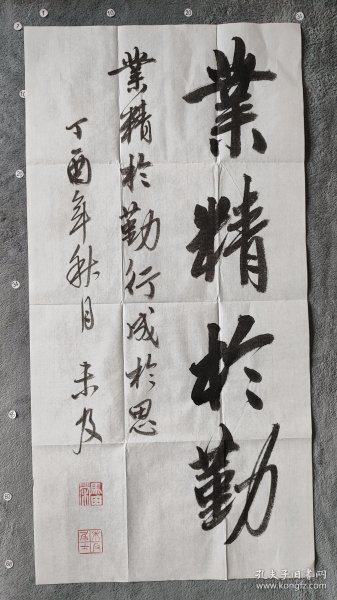 業精於勤
業精於勤行成於思
丁酉年秋月 未及
孔夫子旧书网
www.kongfz.com